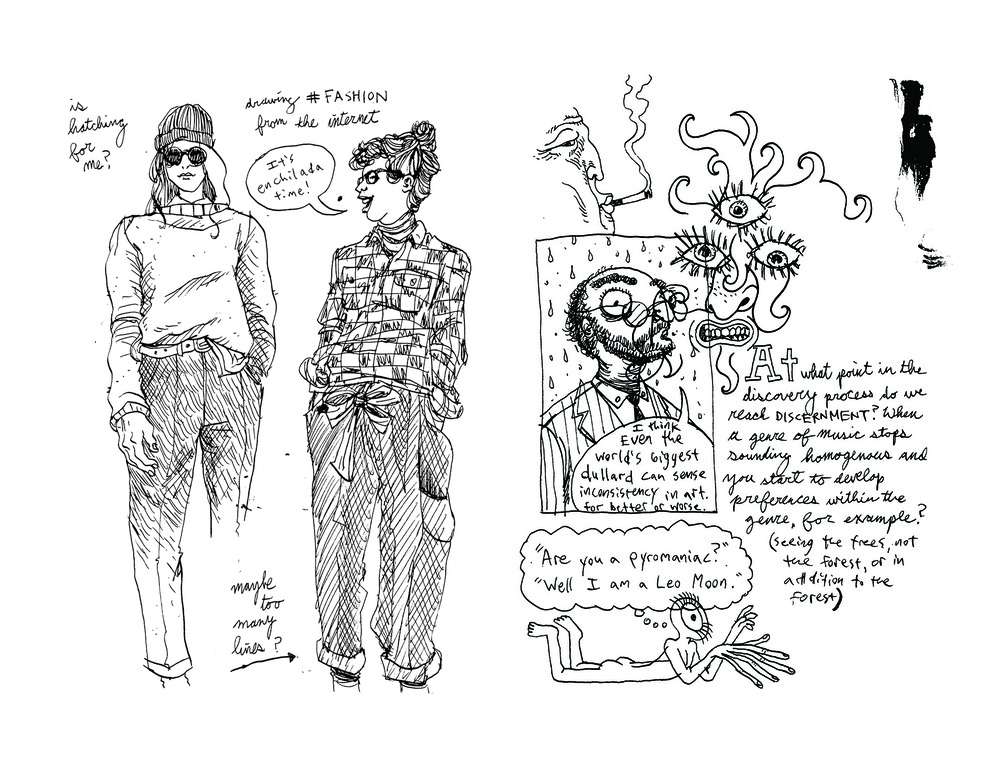 is
hatching
for
me?
drawing #FASHION
from the internet
It's
enchilada
time!
maybe
too
many
lines?
I think
Even the
world's biggest
dullard can sense
inconsistency in art.
for better or worse.
At what point in the
discovery process do we
reach DISCERNMENT? When
a genre of music stops
sounding homogenous and
you start to develop
preferences within the
genre, for example?
(seeing the trees, not
the forest, or in
addition to the
forest)
"Are you a pyromaniac?"
"Well I am a Leo Moon."